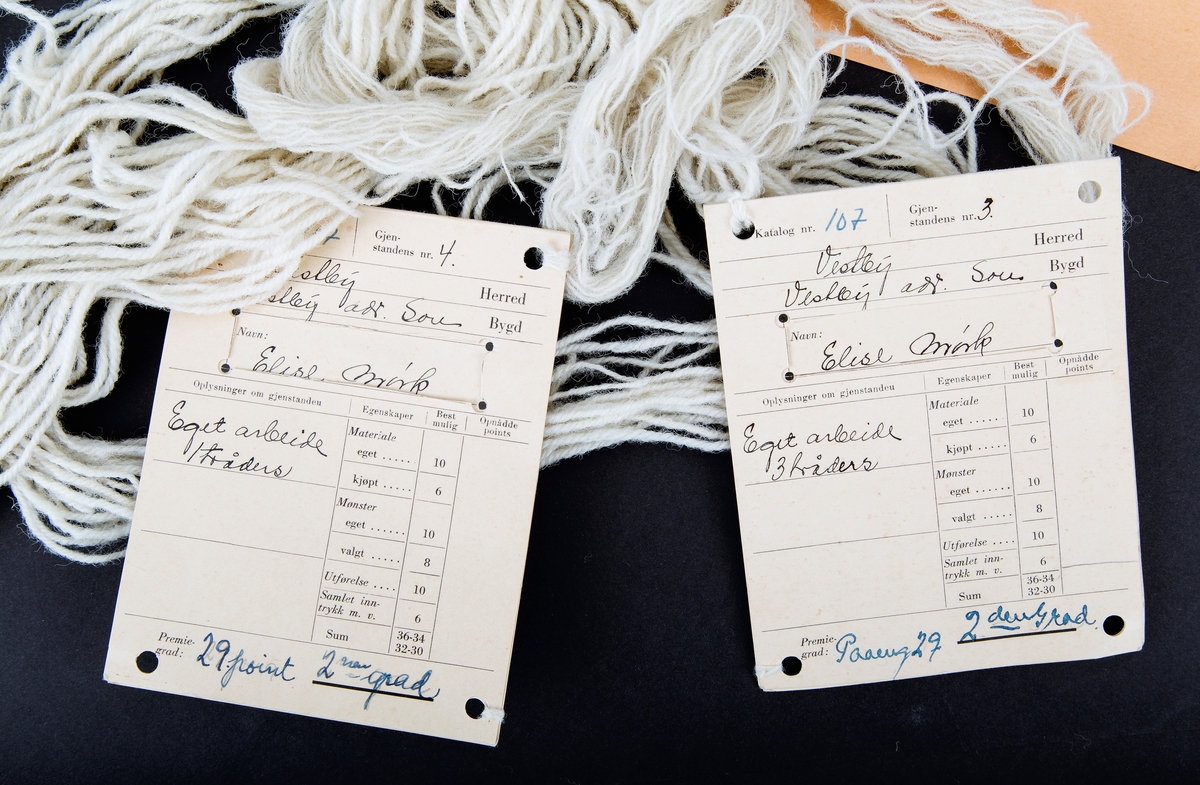 7
Gjen-
standens nr. 4.
estby Herred
estby adr. Son Bygd
Navn:
Elise Mörk
Oplysninger om gjenstanden Egenskaper Best mulig Opnådde points
Eget arbeide
1 tråders
Materiale
eget ..... 10
kjøpt ..... 6
Mønster
eget ...... 10
valgt ..... 8
Utførelse .... 10
Samlet inn-
trykk m. v. 6
Sum 36-34
32-30
Premie-
grad: 29. point 2nen grad
Katalog nr. 107 Gjen-
standens nr. 3.
Vestby Herred
Vestby adr. Son Bygd
Navn:
Elise Mörk
Oplysninger om gjenstanden Egenskaper Best mulig Opnådde points
Eget arbeide
3 tråders
Materiale
eget ..... 10
kjøpt ..... 6
Mønster
eget ..... 10
valgt ..... 8
Utførelse .... 10
Samlet inn-
trykk m. v. 6
Sum 36-34
32-30
Premie-
grad: Poaeng 29 2den Grad